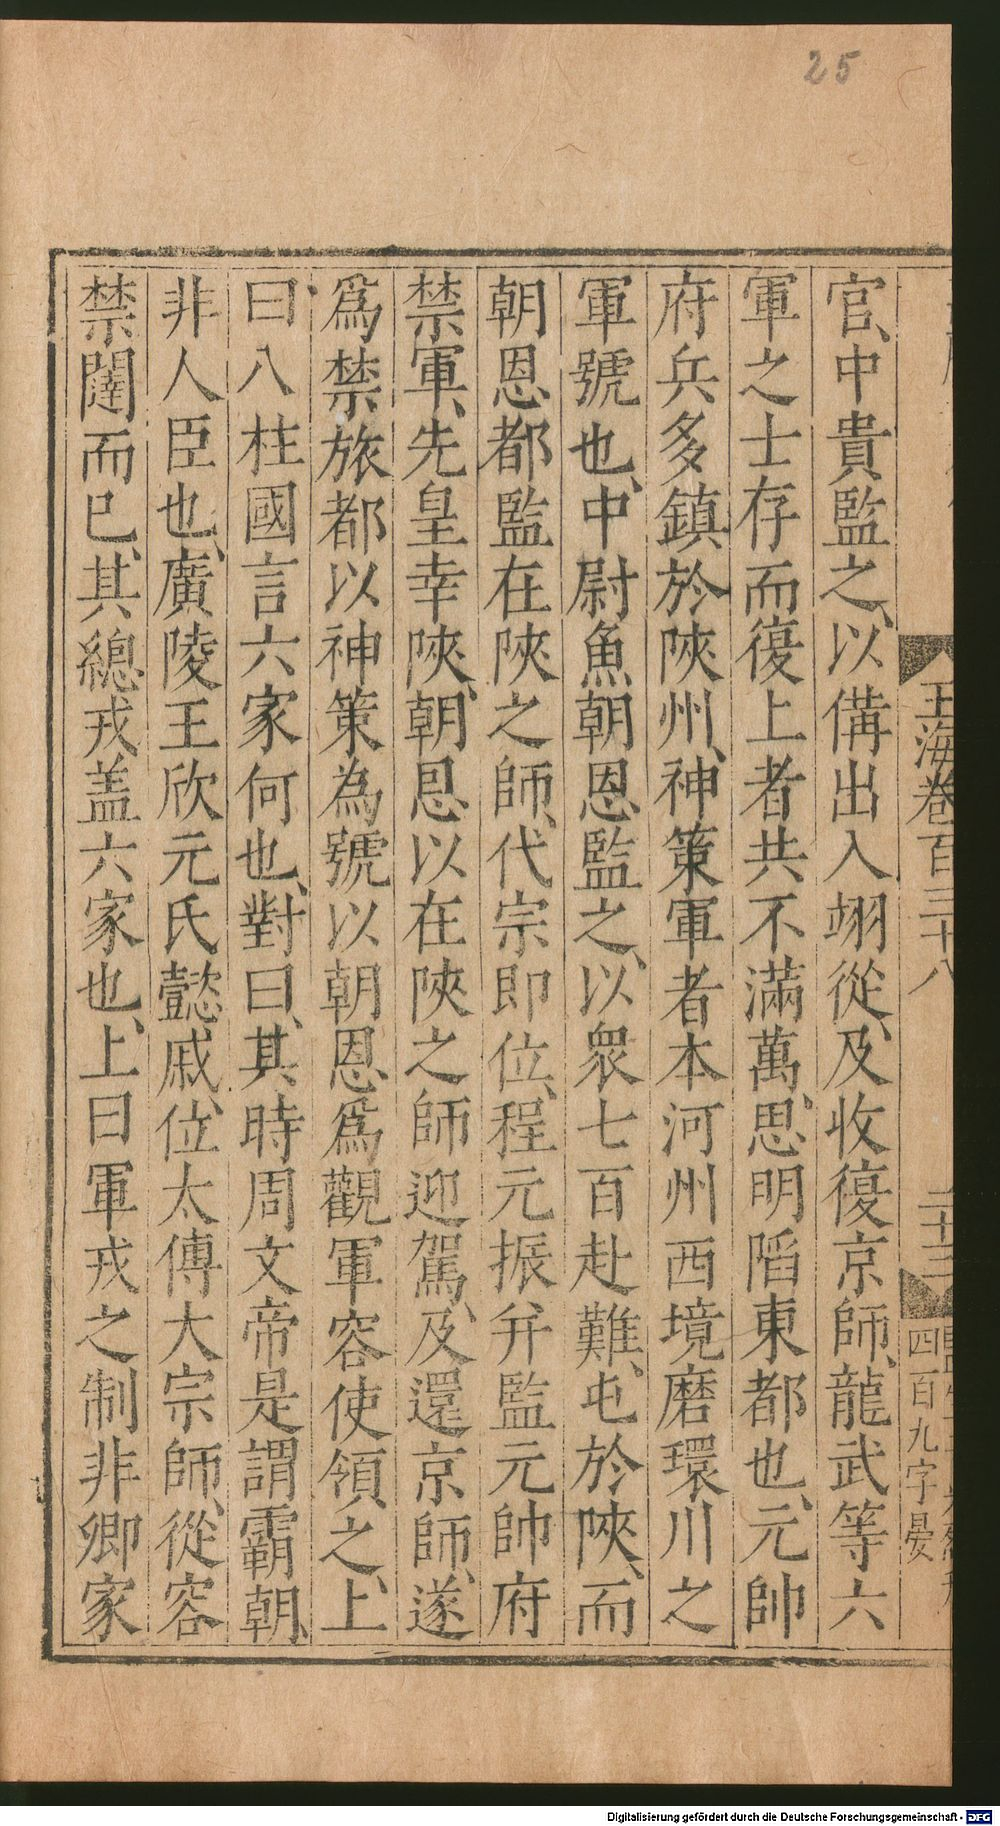 25
玉海卷百三十八
二十三
四百九字晏
官、中貴監之、以備出入翊從、及收復京師、龍武等六
軍之士存而復上者共不滿萬、思明陷東都也、元帥
府兵多鎮於陝州、神策軍者本河州西境磨環川之
軍號也、中尉魚朝恩監之、以衆七百赴難、屯於陝、而
朝恩都監在陝之師、代宗即位、程元振并監元帥府
禁軍、先皇幸陝、朝恩以在陝之師迎駕、及還京師、遂
爲禁旅都以神策為號以朝恩爲觀軍容使領之、上
曰八柱國言六家何也、對曰、其時周文帝是謂霸朝、
非人臣也、廣陵王欣元氏懿戚、位太傅大宗師、從容
禁闥而已、其總戎盖六家也、上曰軍戎之制非卿家
Digitalisierung gefördert durch die Deutsche Forschungsgemeinschaft - DFG